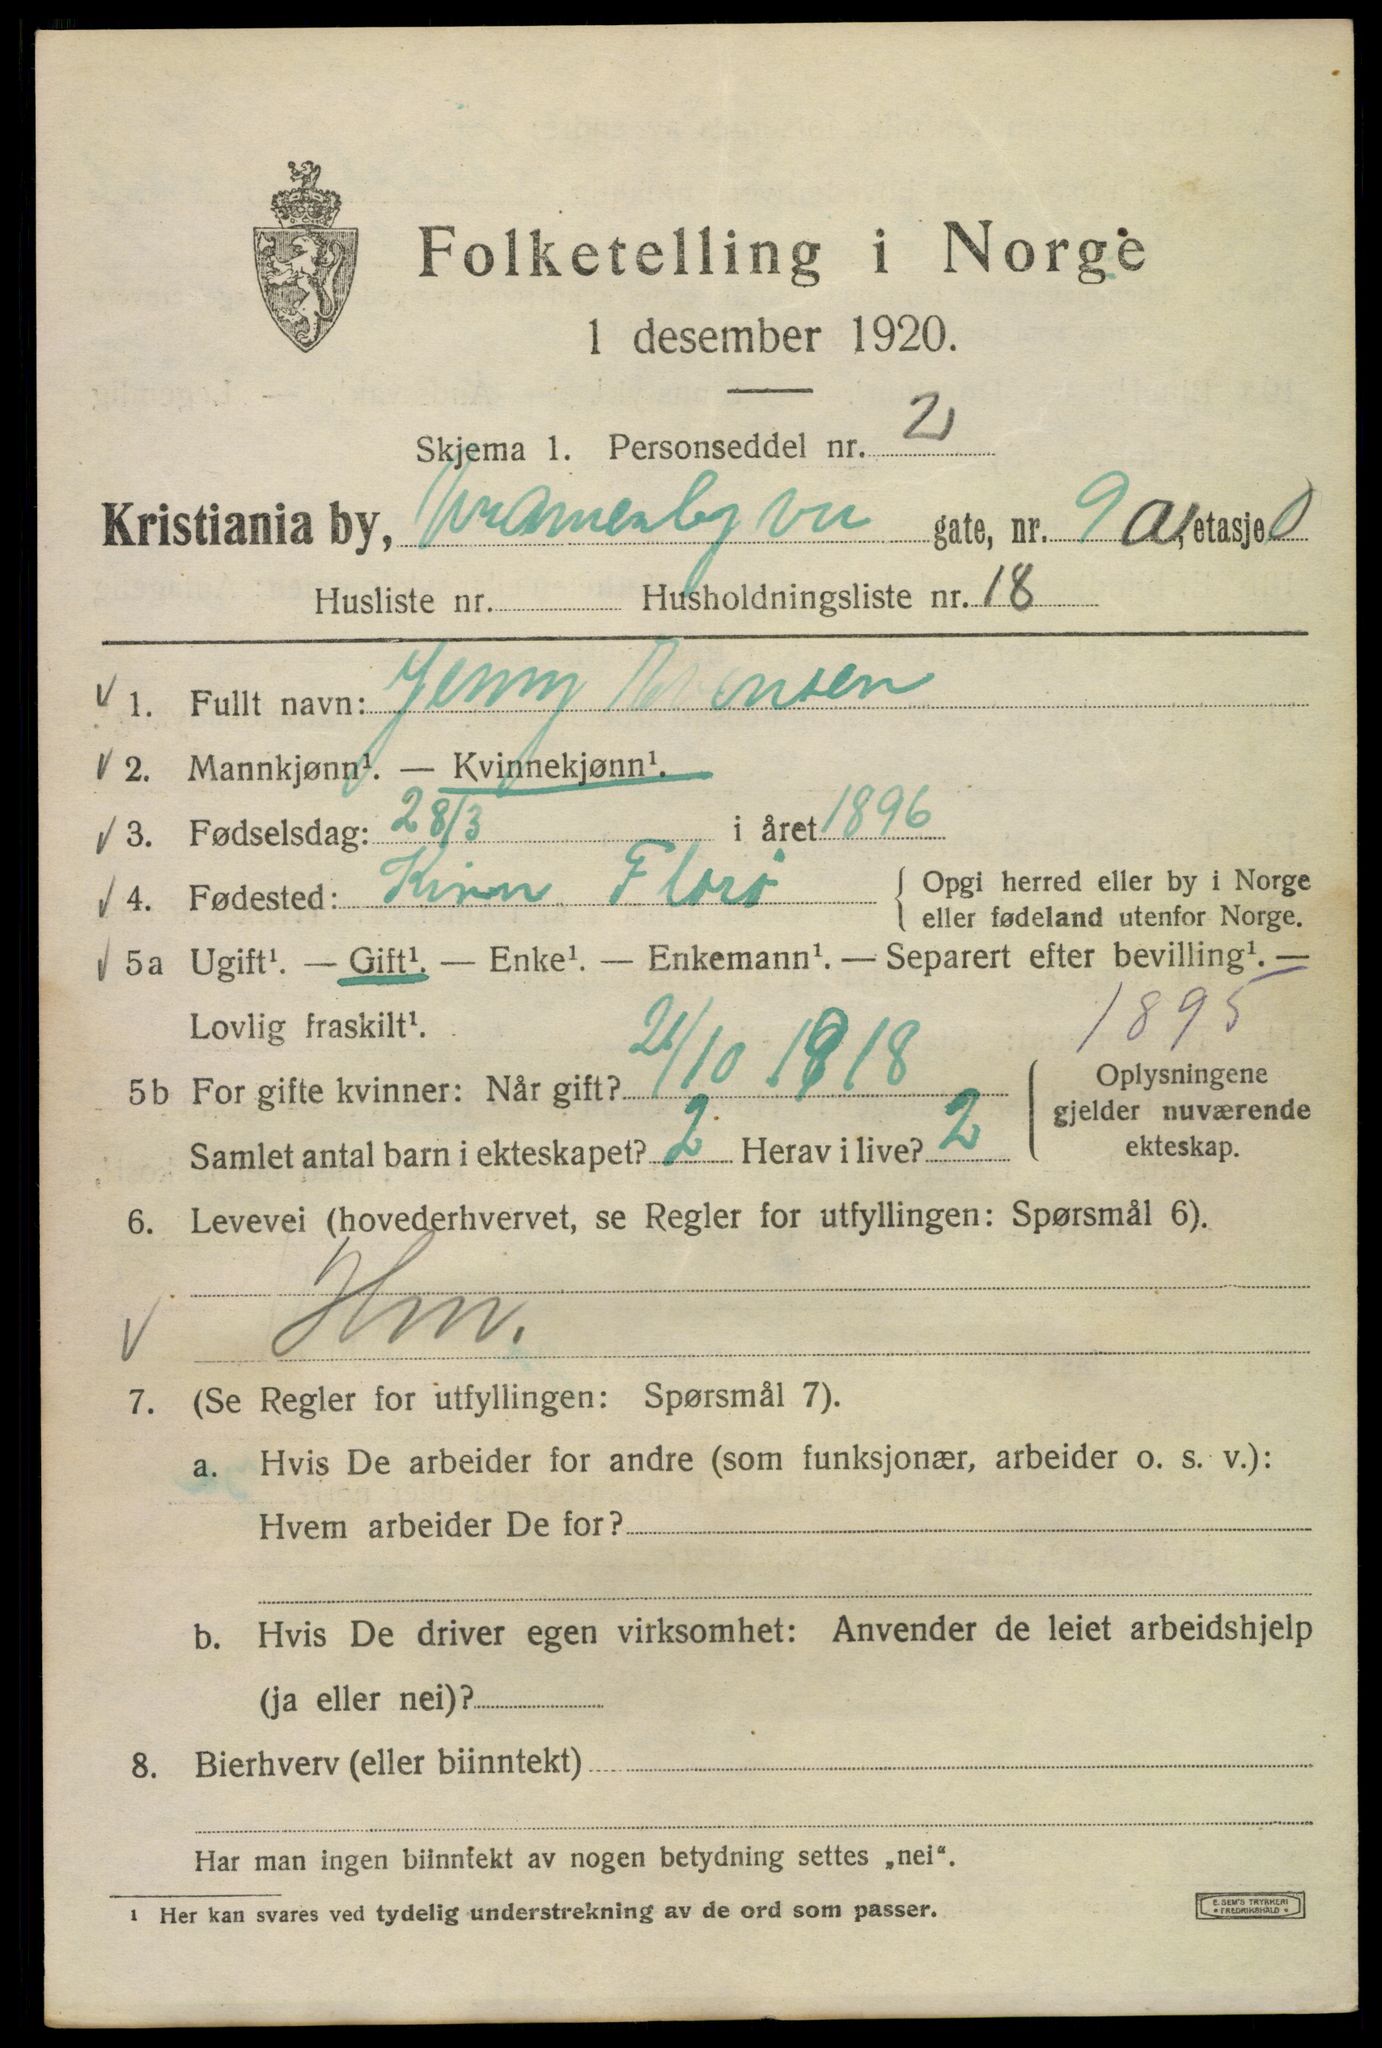 Folketelling i Norge
1 desember 1920.
Skjema 1. Personseddel nr. 2
Kristiania by, gate, nr. 9 a, etasje 0
Husliste nr. Husholdningsliste nr. 18
1. Fullt navn: Jenny
2. Mannkjønn¹. — Kvinnekjønn¹.
3. Fødselsdag: 28/3 i året 1896
4. Fødested: Kinn Florø { Opgi herred eller by i Norge
eller fødeland utenfor Norge.
5a Ugift¹. — Gift¹. — Enke¹. — Enkemann¹. — Separert efter bevilling¹. —
Lovlig fraskilt¹. 1895
5b For gifte kvinner: Når gift? 21/10 1918
Samlet antal barn i ekteskapet? 2 Herav i live? 2
Oplysningene
gjelder nuværende
ekteskap.
6. Levevei (hovederhvervet, se Regler for utfyllingen: Spørsmål 6).
Hm.
7. (Se Regler for utfyllingen: Spørsmål 7).
a. Hvis De arbeider for andre (som funksjonær, arbeider o. s. v.):
Hvem arbeider De for?
b. Hvis De driver egen virksomhet: Anvender de leiet arbeidshjelp
(ja eller nei)?
8. Bierhverv (eller biinntekt)
Har man ingen biinntekt av nogen betydning settes „nei“.
1 Her kan svares ved tydelig understrekning av de ord som passer.
E. SEM'S TRYKKERI
FREDRIKSHALD